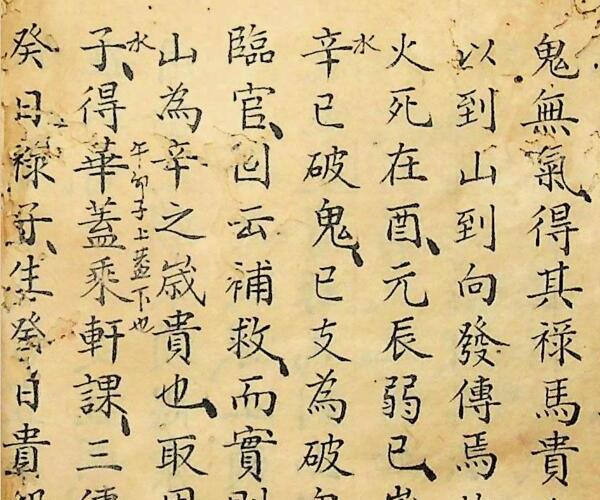 鬼無氣得其祿馬貴
以到山到向發傳焉
火死在酉、元辰弱巳
辛巳破鬼、巳支為破
水
臨官、囙云補救、而實則
山為辛之歲貴也、取
子、得華蓋乘軒課、三
水
午卯子上蓋下也
癸日祿子、生癸日貴